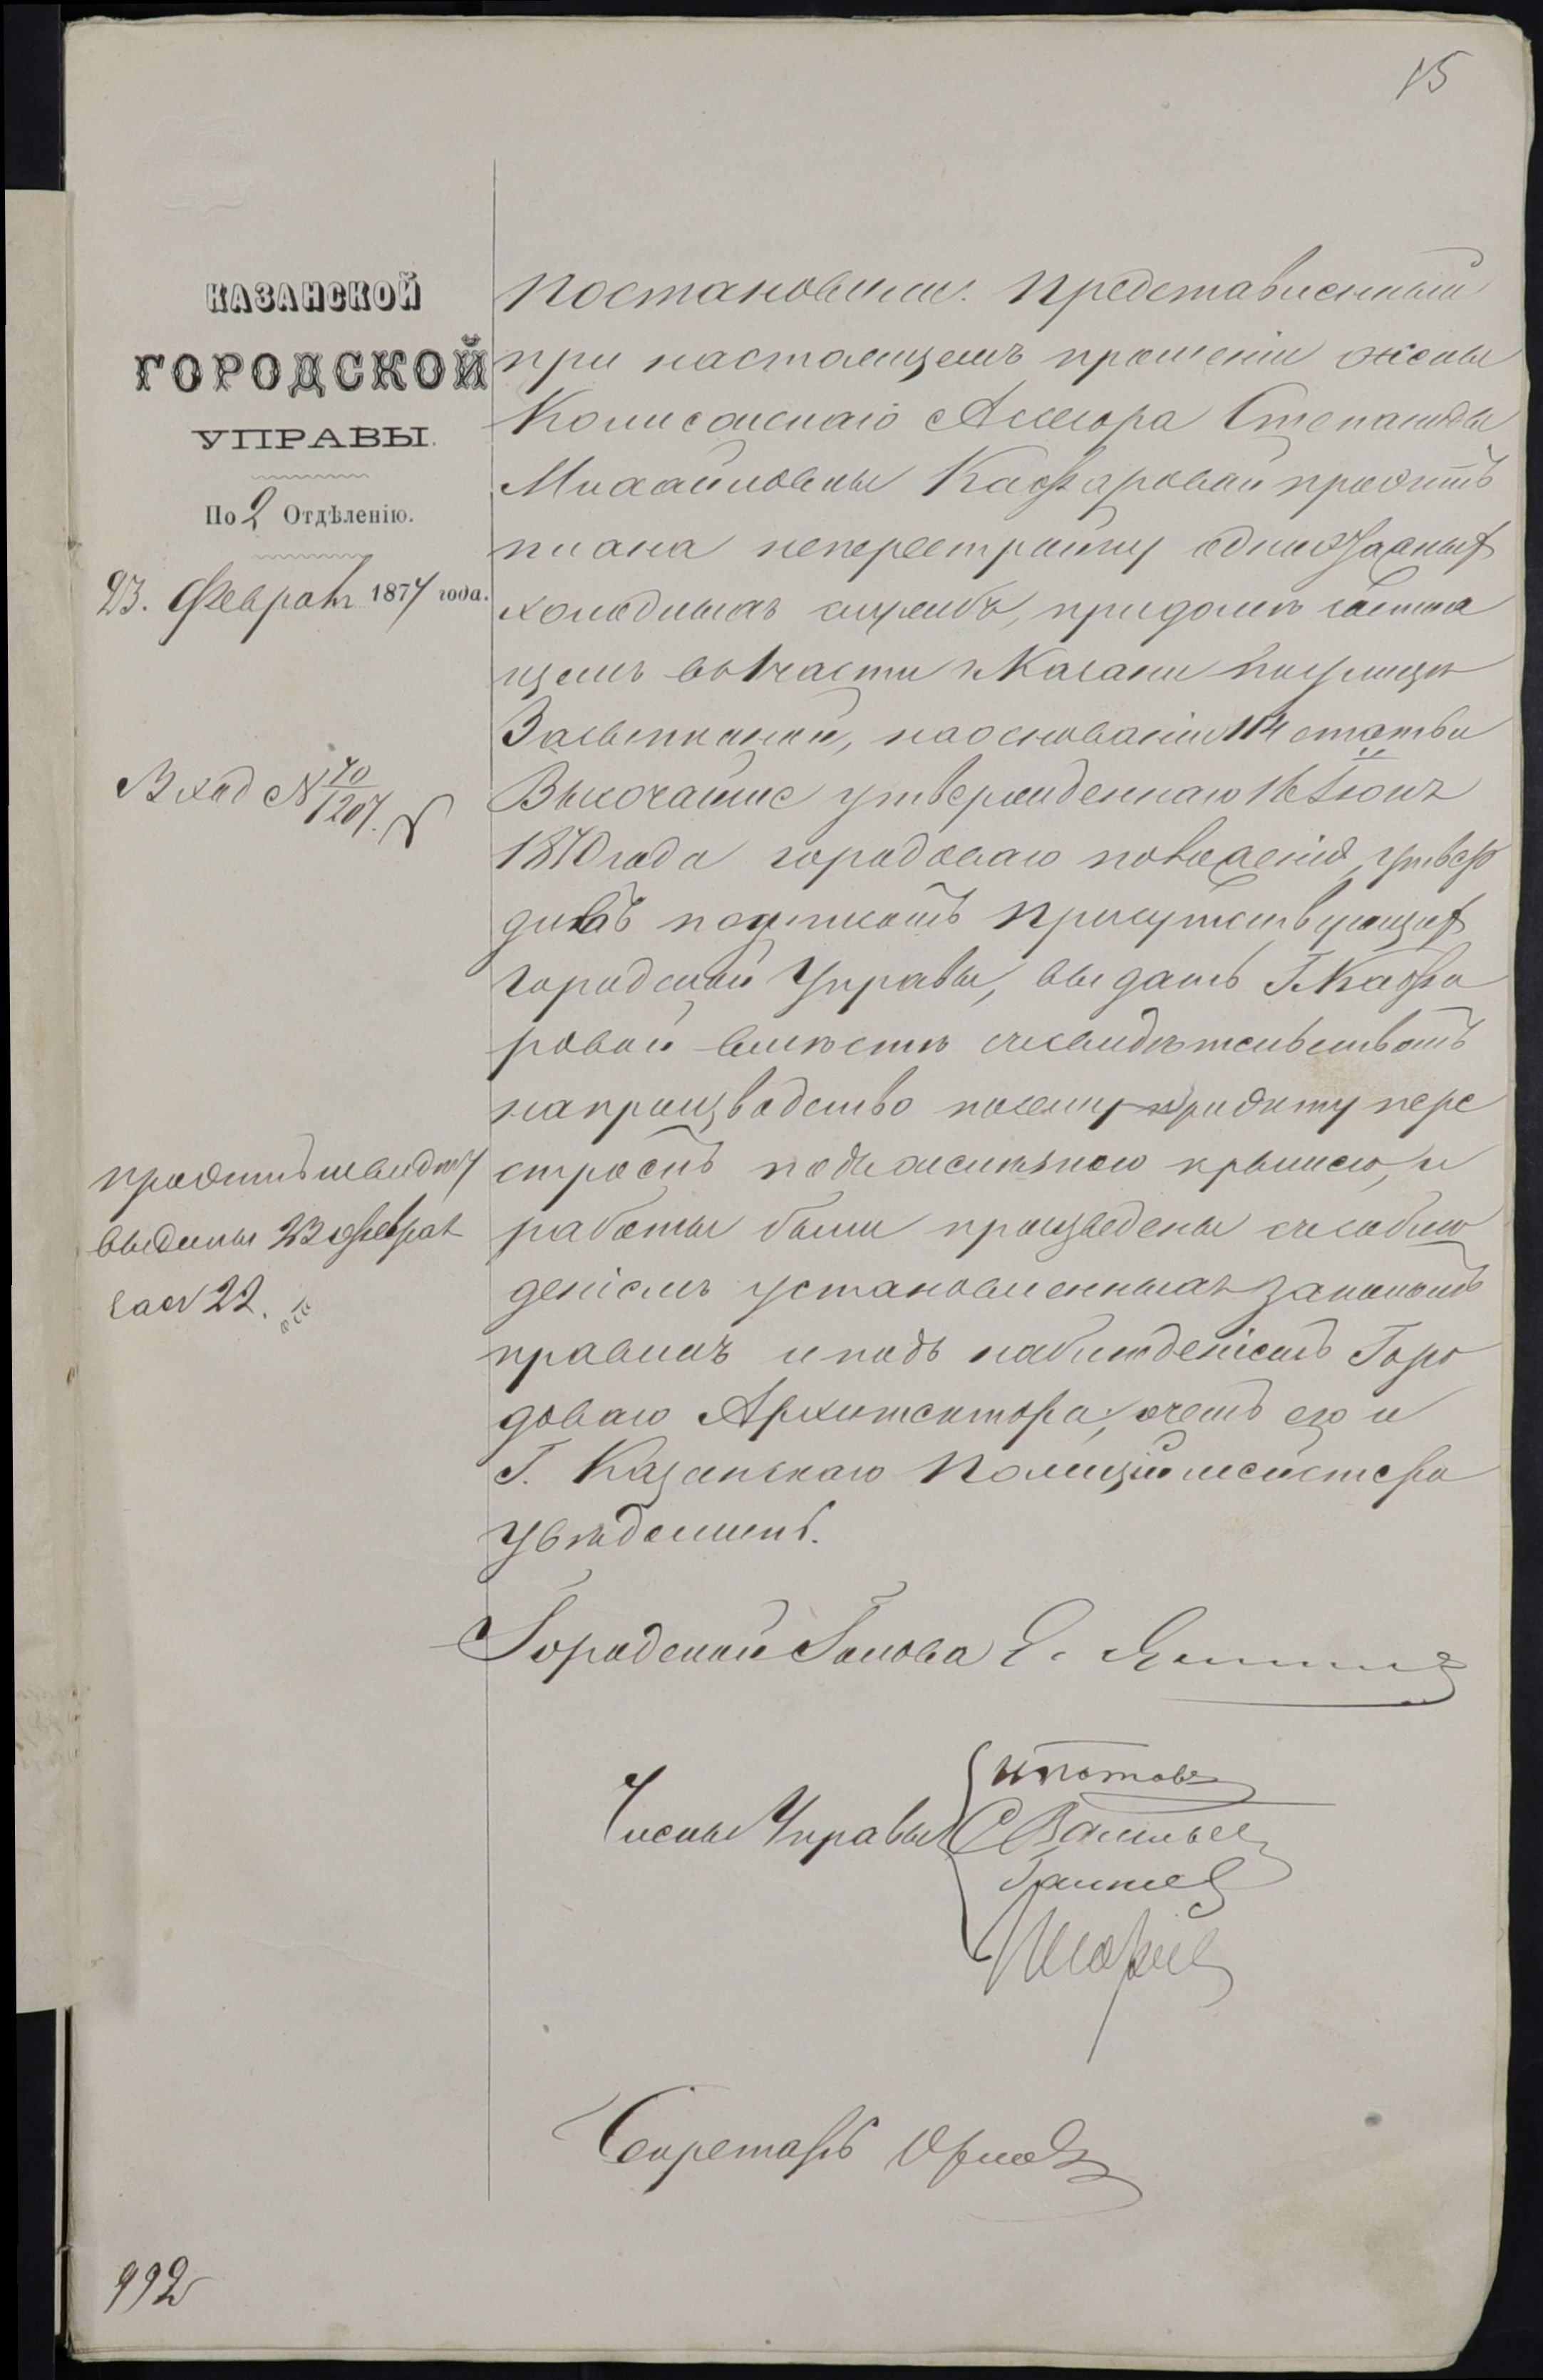 15
КАЗАНСКОЙ
ГОРОДСКОЙ
УПРАВЫ.
По 2 Отдѣленію.
23. Февраля 1874 года.
Вход № 70/1207.
проэктъ и свидѣт
выданы 23 февраля
за № 22.
992
Постановили: Представленный
при настоящемъ прошеніи жены
Коллежскаго Ассесора Степаниды
Михайловны Кафаровой проэктъ
плана на перестройку одноэтажныхъ
холодныхъ службъ, при домѣ состоя
щемъ въ 1 части г. Казани по улицѣ
Засыпкиной, на основаніи 114 статьи
Высочайше утвержденнаго 16 Іюня
1870 года городоваго положенія, утвер
дивъ подписомъ присутствующихъ
Городской Управы, выдать Г. Кафа
ровой вмѣстѣ съ свидѣтельствомъ
на производство по сему проэкту пере
строекъ
работы были произведены съ соблю
деніемъ установленныхъ закономъ
правилъ и подъ наблюденіемъ Горо
доваго Архитектора, о чемъ его и
Г. Казанскаго Полиціймейстера
увѣдомить.
Городской Голова Э. Янишъ
Члены Управы
С Васильев
Секретарь Орлов